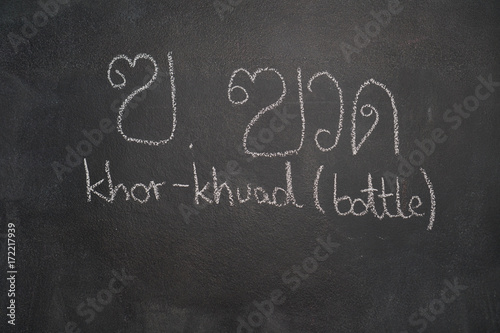 ฃ. ฃวด
khor-khuad (bottle)
Adobe Stock | 172217939